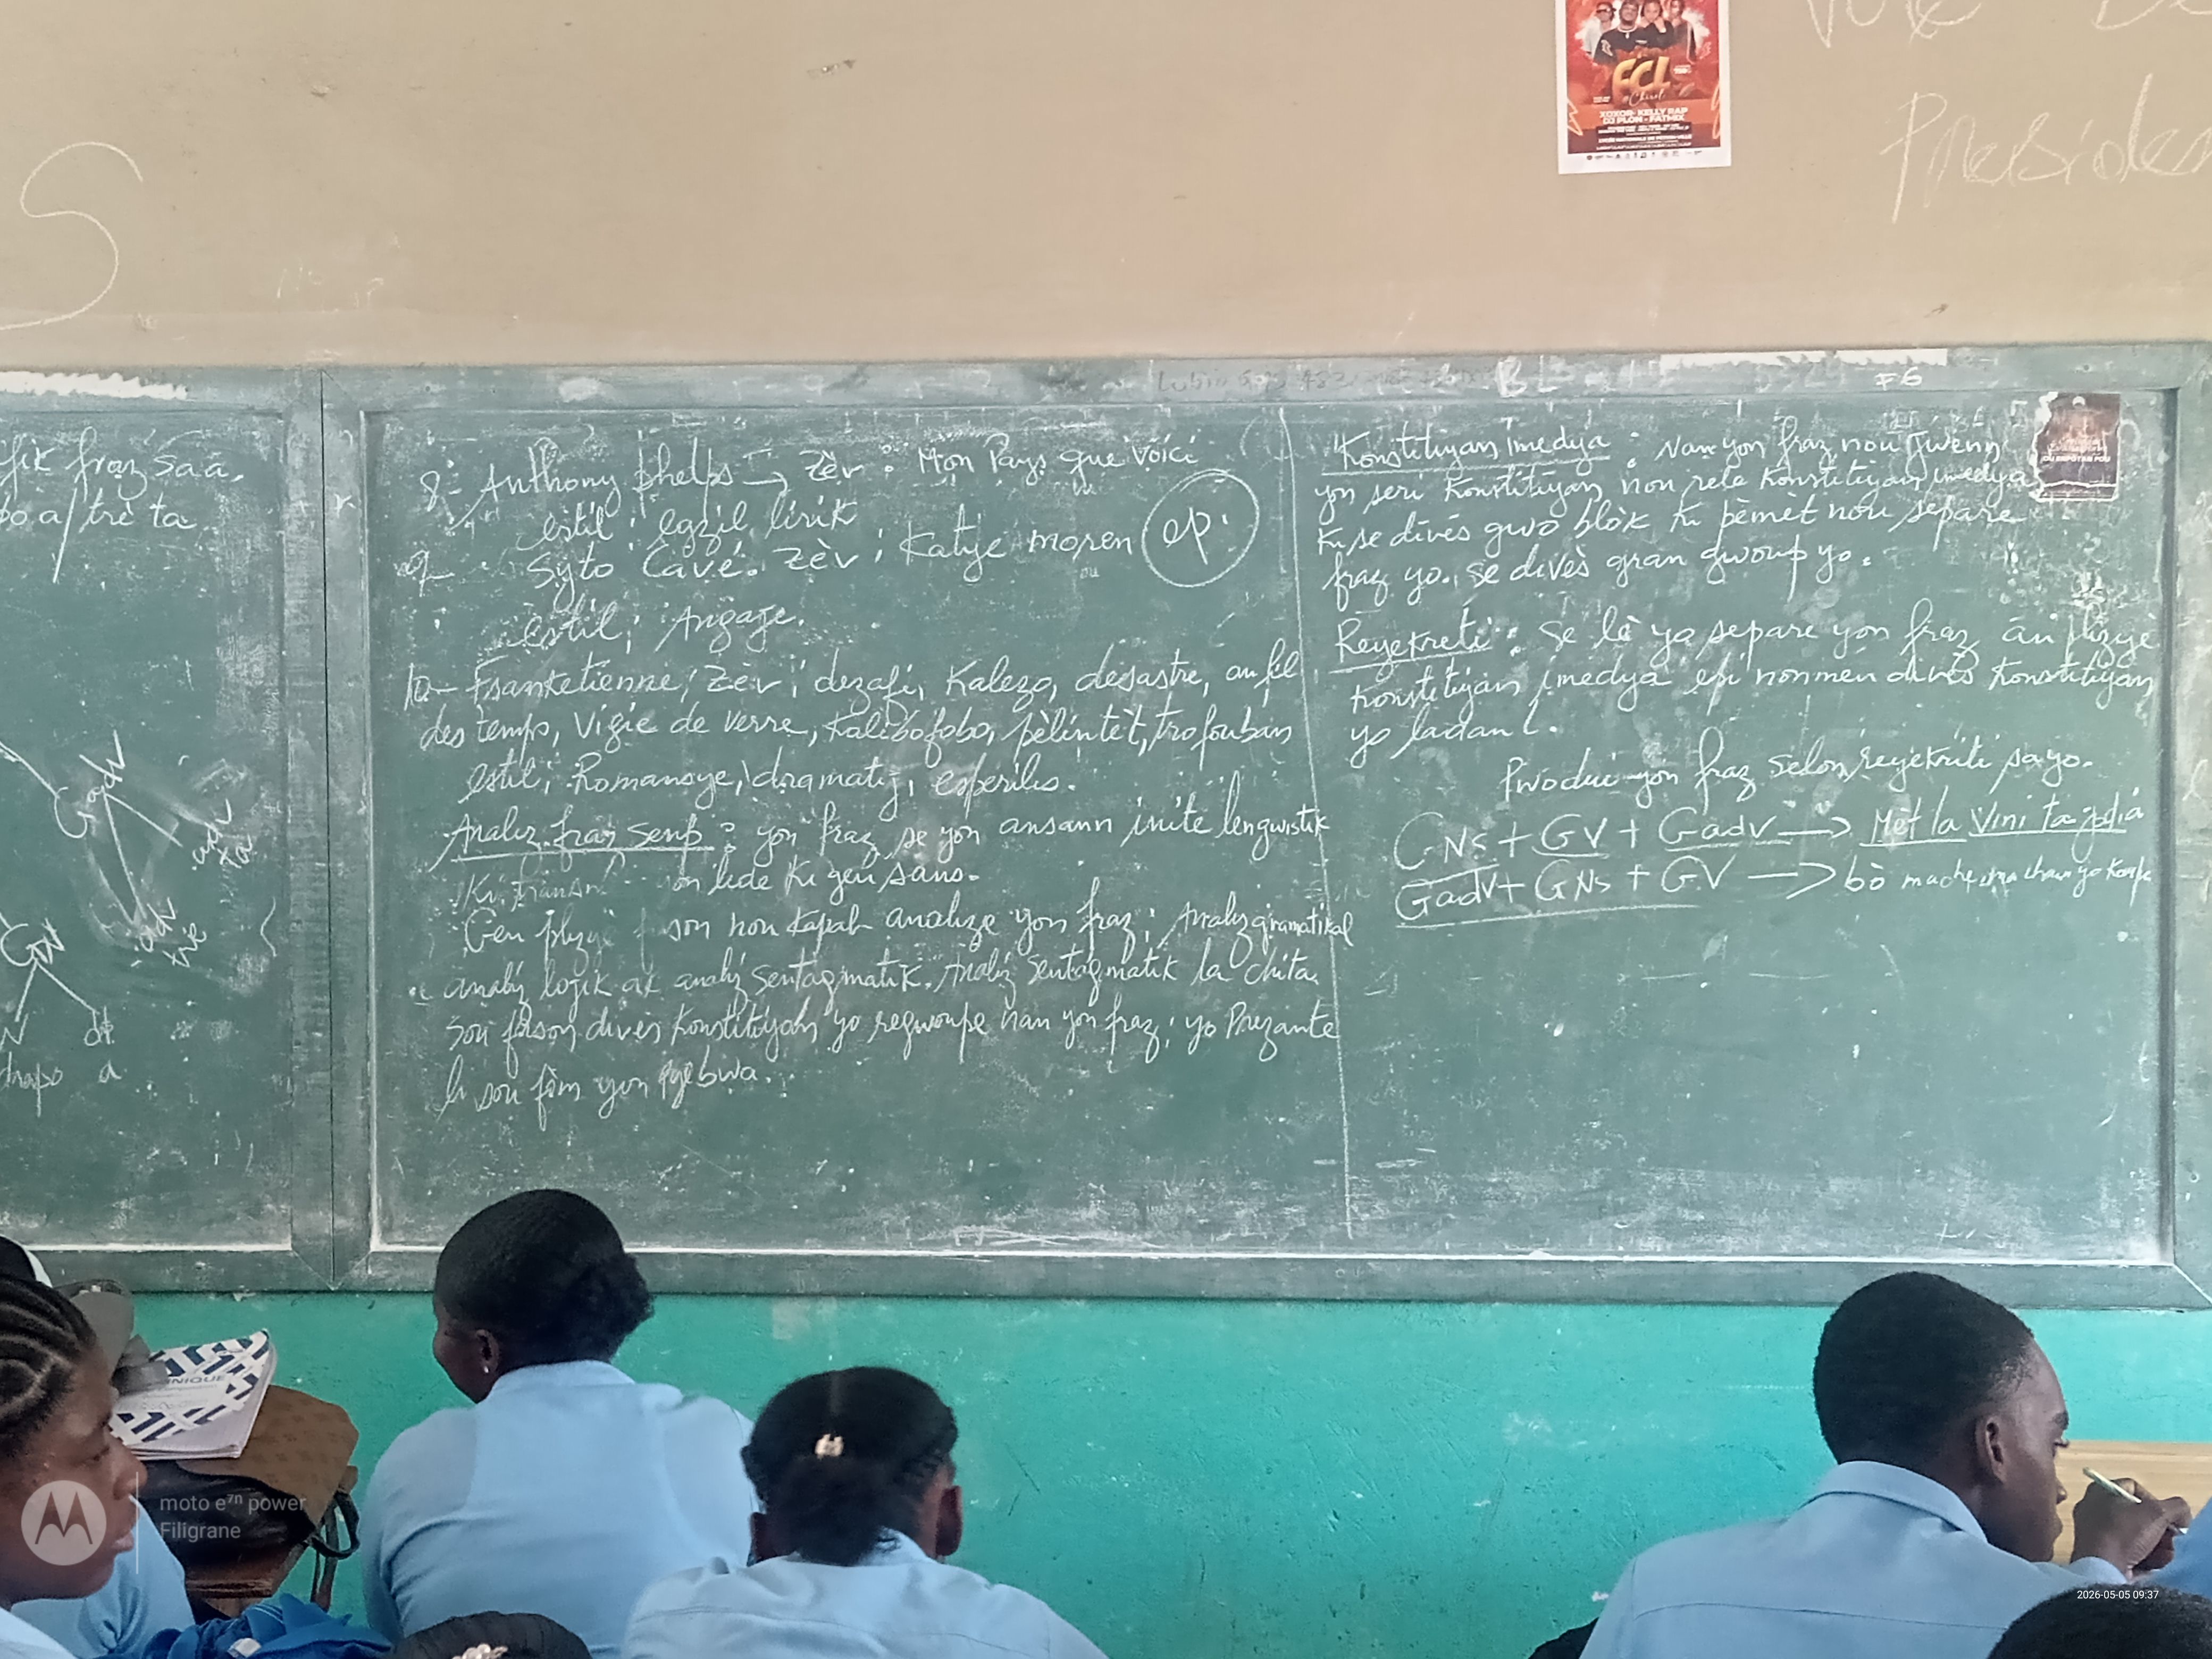 S
FCL
XOXOR- KELLY RAP
DJ PLON - FATMIX
Vote De
Presiden
F6
fik fraz saa.
a / trè ta
Gadv
adv
ta
adv
trè
GN
N
dt
drapo a
8- Anthony phelps → Zèv : Mon Pays que voici
estil : egzil, lirik
9- Syto Cavé. Zèv : Katye mopen
ou
ep.
estil : Angaje.
10- Frankétienne, Zèv : dezafi, Kalezo, desastre, au fil
des temps, vigie de verre, Kalibofobo, pèlintèt, troufouban
estil : Romansye, dramatij, espiralis.
Analiz fraz senp : yon fraz se yon ansanm inite lengwistik
Ki lide ki gen sans.
Gen plizyè fason nou kapab analize yon fraz : Analiz gramatikal
analiz lojik ak analiz sentagmatik. Analiz sentagmatik la chita
sou fason divès Konstitiyan yo regwoupe nan yon fraz ; yo Prezante
li sou fòm yon pyebwa.
Konstitiyan imedya : Nan yon fraz nou jwenn
yon seri Konstitiyan non rele Konstitiyan imedya
ki se divès gwo blòk ki pèmèt nou separe
fraz yo, se divès gran gwoup yo.
Reyekriti : Se lè ya separe yon fraz an plizyè
Konstitiyan imedya epi nonmen divès Konstitiyan
yo ladan l.
Pwodui yon fraz selon reyekriti sa yo.
GNs + GV + Gadv → Mèt la Vini ta jodia
Gadv + GNs + GV → bò mache
moto e⁷ⁿ power
Filigrane
2026-05-05 09:37